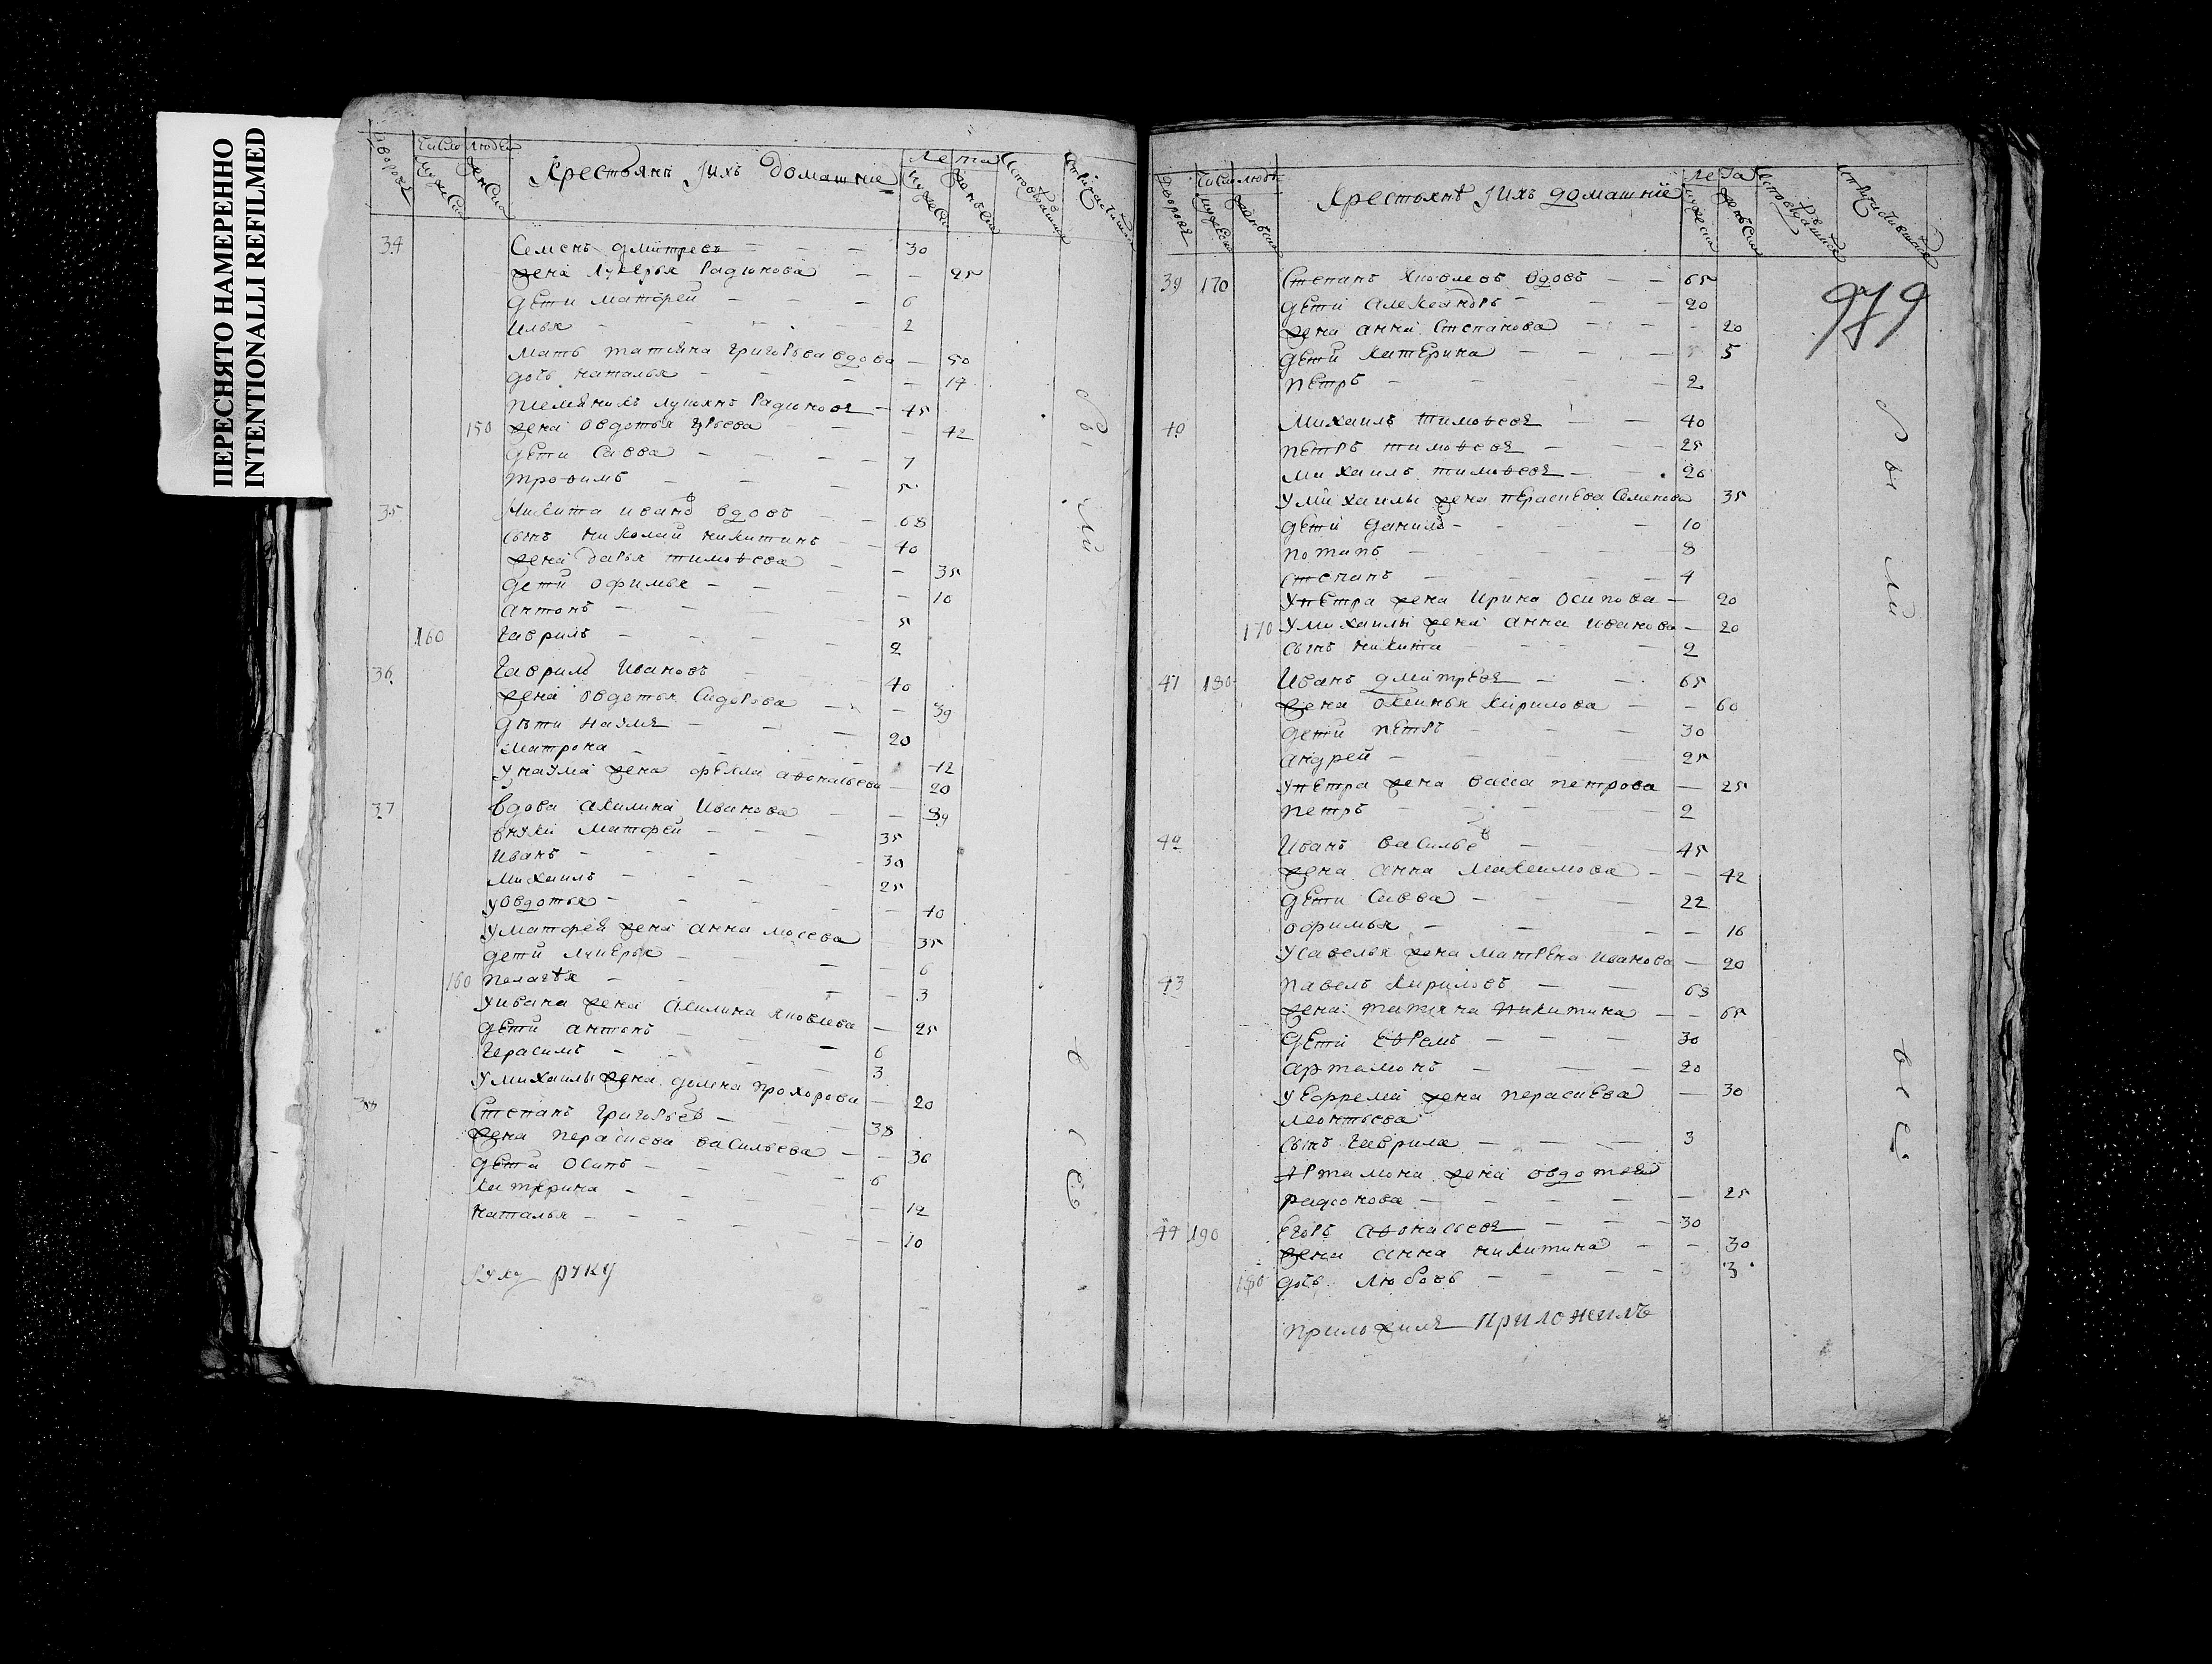 ПЕРЕСНЯТО НАМЕРЕННО
INTENTIONALLI REFILMED
дворовъ Число людей Крестьянъ ихъ домашніе Лета
34 Семенъ дмитревъ 30
жена лукерья Радионова 25
дети матфей 6
илья 2
мать татьяна григорьева вдова 50
дочь наталья 17
племяникъ лукьянъ Радионовъ 45
150 жена овдотья 42
дети савва 7
трофимъ 5
35 Никита ивановъ вдовъ 68
сынъ николай никитинъ 40
жена дарья тимоѳеева 35
дети офимья 10
антонъ 5
160 гаврилъ 2
36 гаврилъ Ивановъ 40
жена овдотья Сидорова 39
дѣти наумъ 20
матрона 12
у наума жена фекла аѳонасьева 20
37 вдова акилина Иванова
внуки матфей 35
иванъ 30
михаилъ 25
овдотья 40
у матфея жена анна мосева 35
дети лукерья 6
160 пелагѣя 3
у ивана жена акилина яковлева 25
дети антонъ 6
герасимъ 3
у михаилы жена домна прохорова 20
38 степанъ григорьевъ 38
жена праскева васильева 36
дети осипъ 6
катерина 12
наталья 10
руку руку
дворовъ Число людей Крестьянѣ ихъ домашніе Лета
979
39 170 Степанъ яковлевъ вдовъ 65
дети александръ 20
жена анна степанова 20
дети катерина 5
петръ 2
40 Михаилъ тимоѳеевъ 40
петръ тимоѳеевъ 25
михаилъ тимоѳеевъ 20
у михаилы жена пераскева семенова 35
дети данилъ 10
потапъ 8
степанъ 4
у петра жена ирина осипова 20
170 у михаилы жена анна иванова 20
сынъ никита 2
41 180 Иванъ дмитревъ 65
жена оксинья кирилова 60
дети петръ 30
андрей 25
у петра жена васса петрова 25
петръ 2
42 Иванъ васильевъ 45
жена анна максимова 42
дети савва 22
офимья 16
у савелья жена матрена иванова 20
43 павелъ кириловъ 68
жена татьяна никитина 65
дети еѳремъ 30
артамонъ 20
у ефрема жена перасκева 30
леонтьева
сынъ гаврила 3
артамона жена овдотея
радионова 25
44 190 егоръ аѳонасьевъ 30
жена анна никитина 30
180 дочь любовь 3
приложилъ приложилъ